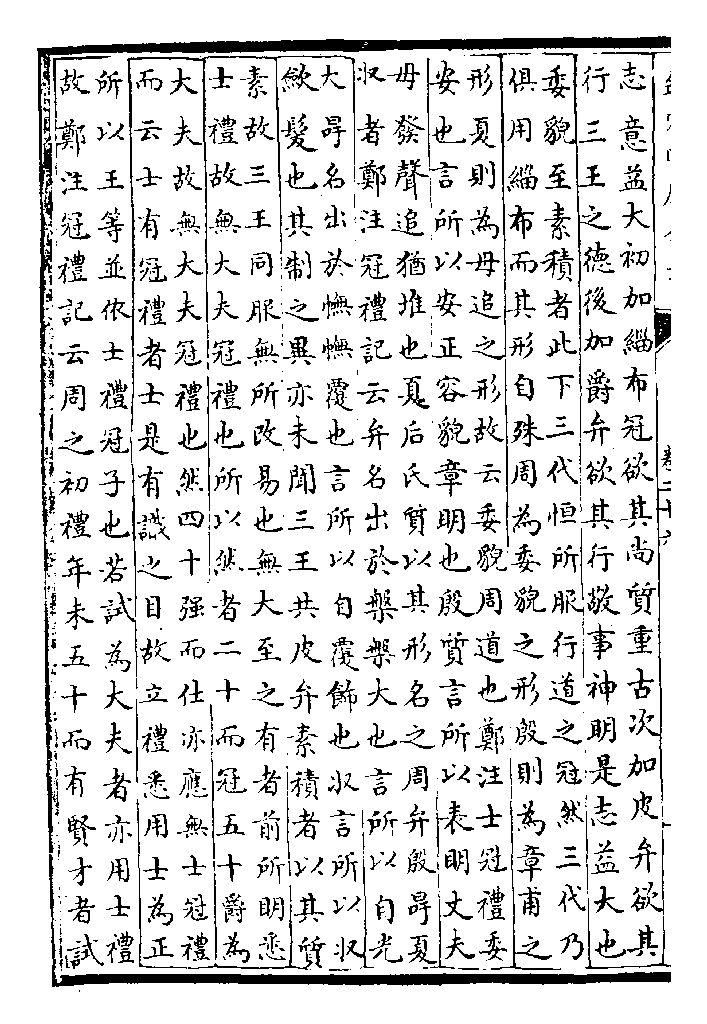 卷二十六
志意益大初加緇布冠欲其尚質重古次加皮弁欲其
行三王之德後加爵弁欲其行敬事神明是志益大也
委貌至素積者此下三代恒所服行道之冠然三代乃
俱用緇布而其形自殊周為委貌之形殷則為章甫之
形夏則為毋追之形故云委貌周道也鄭注士冠禮委
安也言所以安正容貌章明也殷質言所以表明丈夫
毋發聲追猶堆也夏后氏質以其形名之周弁殷冔夏
収者鄭注冠禮記云弁名出於槃槃大也言所以自光
大冔名出於幠幠覆也言所以自覆飾也収言所以収
斂髮也其制之異亦未聞三王共皮弁素積者以其質
素故三王同服無所改易也無大至之有者前所明悉
士禮故無大夫冠禮也所以然者二十而冠五十爵為
大夫故無大夫冠禮也然四十强而仕亦應無士冠禮
而云士有冠禮者士是有識之目故立禮悉用士為正
所以王等並依士禮冠子也若試為大夫者亦用士禮
故鄭注冠禮記云周之初禮年未五十而有賢才者試